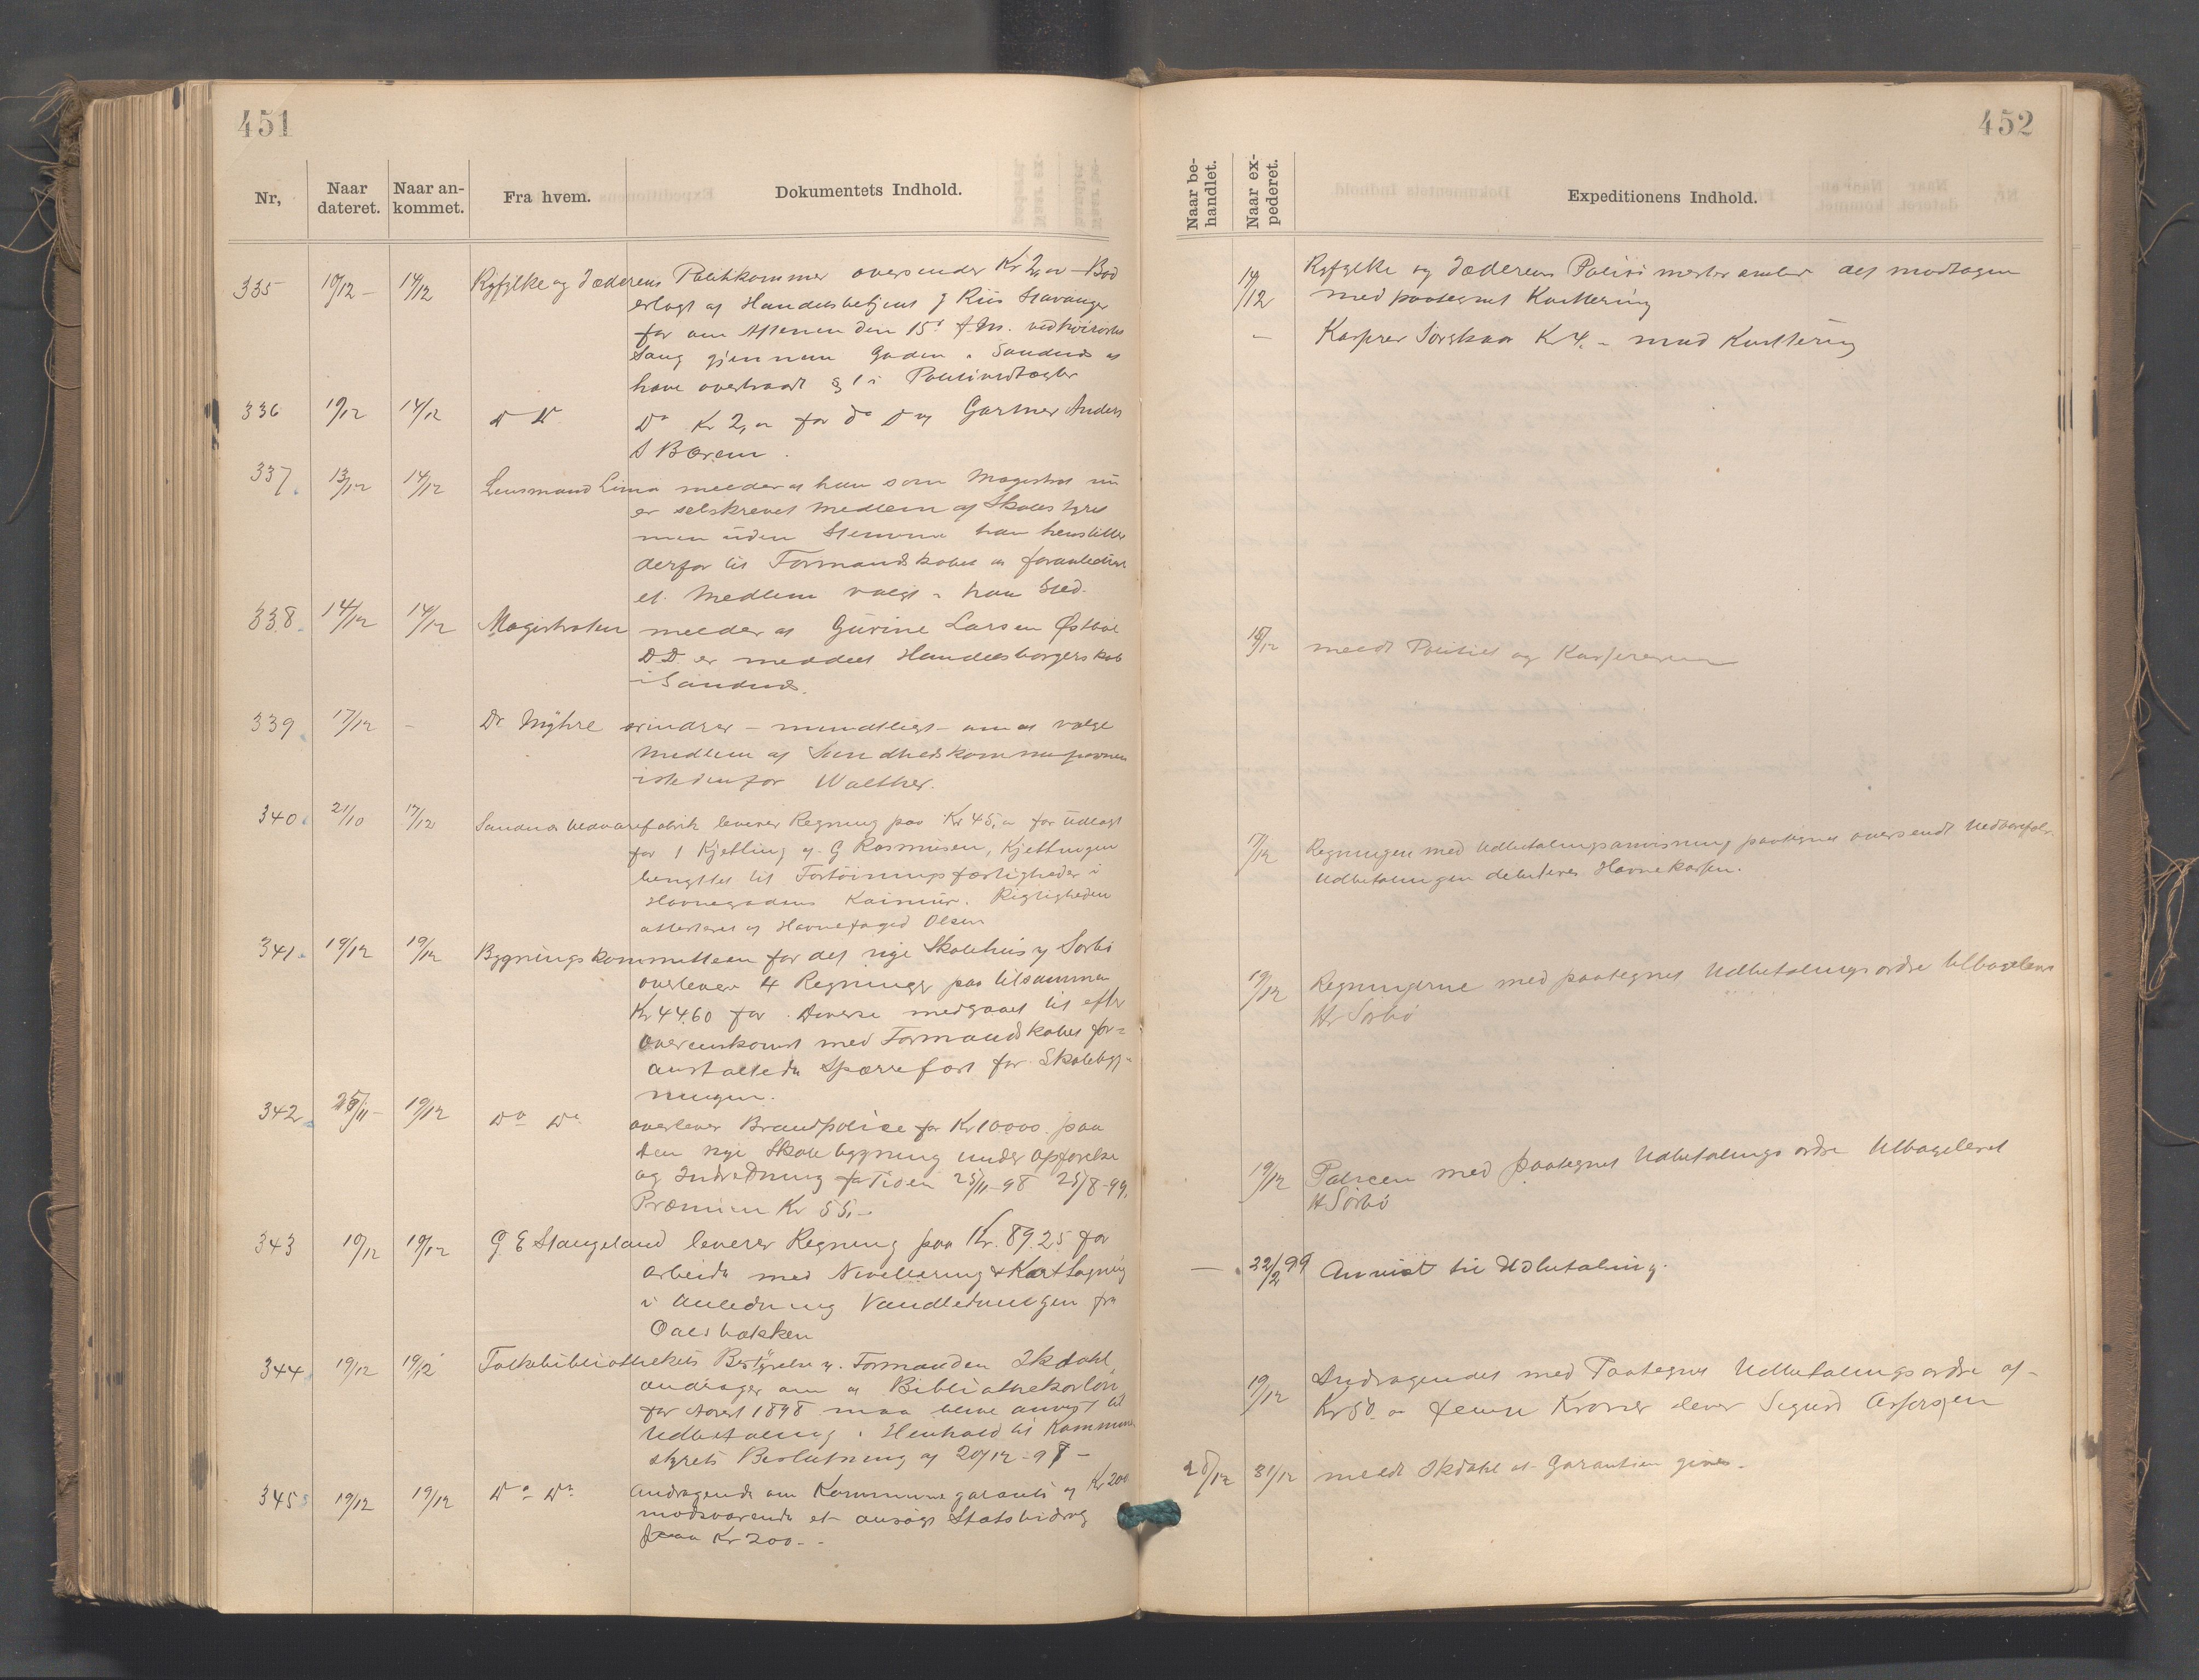 451
452
Nr, Naar dateret. Naar an-kommet. Fra hvem. Dokumentets Indhold.
Naar be-handlet. Naar ex-pederet. Expeditionens Indhold.
335 10/12 - 14/12 Ryfylke og Jæderens Politikammer oversender Kr 2,oo - Bod
erlagt af Handelsbetjent J Riis Stavanger
for om Aftenen den 15d f. M. ved høirøstet
Sang gjennem Gaden i Sandnes at
have overtraadt § 1 i Politivedtægter
14/12 Ryfylke og Jæderens Politimesterembed att modtagen
med paategnet Kvittering
- Kasserer Kr 4.- mod Kvittering
336 10/12 14/12 Do Do Do Kr 2,oo for do Do af Gartner Anders
S Bærem.
337. 13/12 14/12 Lensmand Lima melder at han som Magistrat nu
er selvskrevet Medlem af Skolestyret
men uden Stemme han henstiller
derfor til Formandskabet at foranledige
et Medlem valgt i hans Sted.
338. 14/12 14/12 Magistraten melder at Gurine Larsen Østbøe
D.D. er meddelt Handelsborgerskab
i Sandnes.
15/12 meldt Politiet og Kassereren
339. 17/12 - Dr Myhre erindrer - mundtligt - om at vælge
Medlem af Sundhedskommissionen
istedenfor Walther.
340. 21/10 17/12 Sandnæs Uldvarefabrik leverer Regning paa Kr 45,oo for Udlagt
for 1 Kjetting af G Rasmussen, Kjettingen
benyttet til Fortøiningsfærtigheder i
Havnegadens Kaimur. Rigtigheden
attesteret af Havnefoged Olsen
17/12 Regningen med Udbetalingsanvisning paategnet oversendt Uldvarefabr.
Udbetalingen debiteres Havnekassen.
341. 19/12 19/12 Bygningskommitteen for det nye Skolehus af Sørbø
overlever 4 Regninger paa tilsammen
Kr 44.60 for Diverse medgaaet til efter
Overenskomst med Formandskabet for=
anstaltede for Skolebyg=
ningen.
19/12 Regningerne med paategnet Udbetalingsordre tilbagelever
Hr Sørbø
342. 25/11 - 19/12 Do Do overlever Brandpolice for Kr 10000. paa
Den nye Skolebygning under Opførelse
og Indredning for Tiden 25/11-98 25/8-99.
Præmien Kr 55,-
19/12 Policen med paategnet Udbetalingsordre tilbageleveret
H Sørbø
343 10/12 19/12 G. E Stangeland leverer Regning paa Kr. 89.25 for
Arbeide med Nivellering & Kartlægning
i Anledning Vandledningen fra
- 22/2 99 Anvist til Udbetaling.
344. 19/12 19/12 Folkebibliothekets Bestyrelse v. Formanden Skdahl,
andrager om at Bibliothekarløn
for Aaret 1898 maa blive anvist til
Udbetaling i Henhold til Kommune
styrets Beslutning af 20/12-97 -
19/12 Andragendet med Paategnet Udbetalingsordre af
Kr 50.oo femti Kroner elever Sigurd Aspersen
345 19/12 19/12 Do Do Andragende om Kommunegaranti af Kr 200
modsvarende et ansøgt Statsbidrag
paa Kr 200. -
20/12 31/12 meldt Skdahl at Garantien gives.